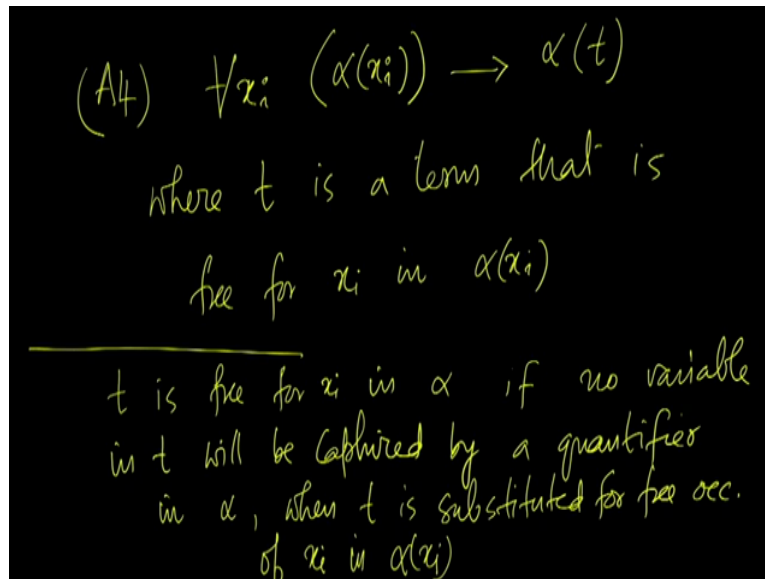 (A4) ∀xᵢ (α(xᵢ)) → α(t)
where t is a term that is
free for xᵢ in α(xᵢ)
t is free for xᵢ in α if no variable
in t will be captured by a quantifier
in α, when t is substituted for free occ.
of xᵢ in α(xᵢ)